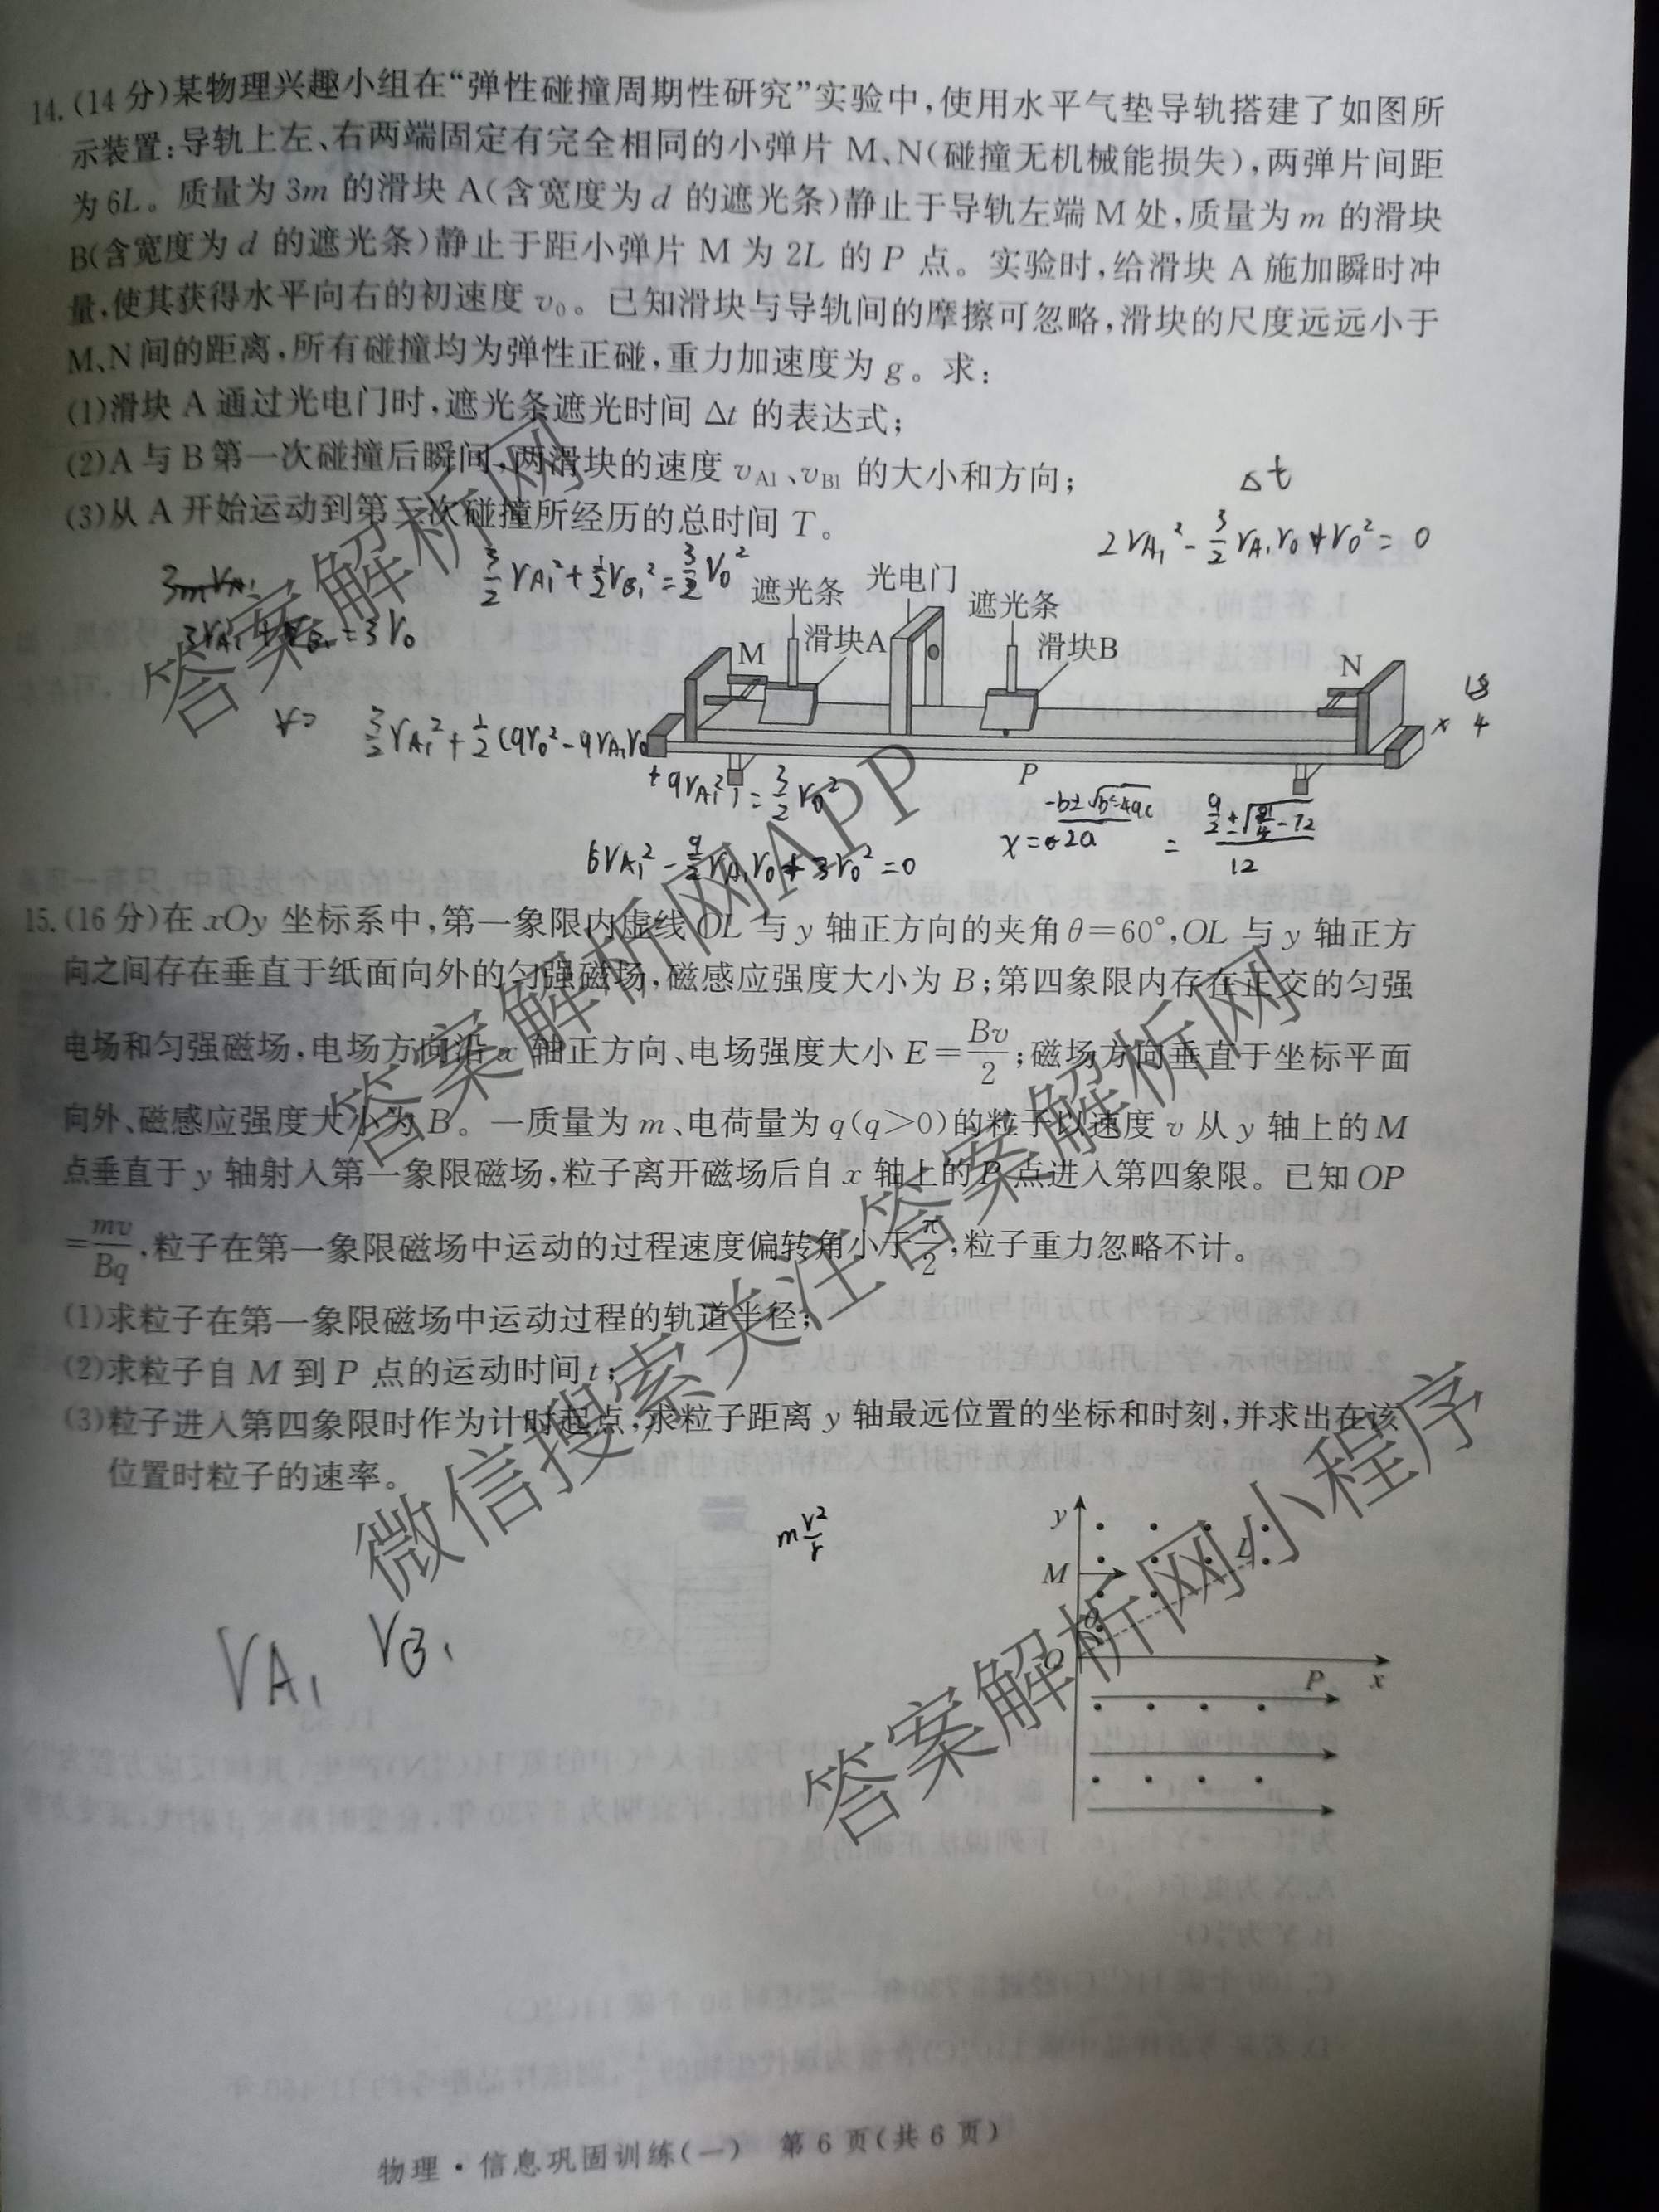 14.(14分)某物理兴趣小组在“弹性碰撞周期性研究”实验中,使用水平气垫导轨搭建了如图所
示装置:导轨上左、右两端固定有完全相同的小弹片 M、N(碰撞无机械能损失),两弹片间距
为6L。质量为3m 的滑块 A(含宽度为d 的遮光条)静止于导轨左端M处,质量为m 的滑块
B(含宽度为d 的遮光条)静止于距小弹片 M 为 2L 的 P 点。实验时,给滑块 A 施加瞬时冲
量,使其获得水平向右的初速度v₀。已知滑块与导轨间的摩擦可忽略,滑块的尺度远远小于
M、N间的距离,所有碰撞均为弹性正碰,重力加速度为g。求:
(1)滑块 A 通过光电门时,遮光条遮光时间 Δt 的表达式;
(2)A与B第一次碰撞后瞬间,两滑块的速度 vA1、vB1 的大小和方向;
(3)从A开始运动到第 次碰撞所经历的总时间T。
Δt
2VA₁²-3/2VA₁V₀+V₀²=0
3/2VA₁²+1/2VB₁²=3/2V₀²
3mVA₁
3VA₁+VB₁=3V₀
遮光条
光电门
遮光条
M
滑块A
滑块B
N
P
3/2VA₁²+1/2(9V₀²-9VA₁V₀
+9VA₁²)=3/2V₀²
x=(-b±√(b²-4ac))/2a
6VA₁²-9/2VA₁V₀+3V₀²=0
15.(16分)在xOy 坐标系中,第一象限内虚线OL 与y 轴正方向的夹角θ=60°,OL 与y 轴正方
向之间存在垂直于纸面向外的匀强磁场,磁感应强度大小为B;第四象限内存在正交的匀强
电场和匀强磁场,电场方向沿x 轴正方向、电场强度大小E=Bv/2;磁场方向垂直于坐标平面
向外、磁感应强度大小为B。一质量为m、电荷量为q(q>0)的粒子以速度 v 从 y 轴上的M
点垂直于y 轴射入第一象限磁场,粒子离开磁场后自x 轴上的P 点进入第四象限。已知OP
=mv/Bq,粒子在第一象限磁场中运动的过程速度偏转角小于π/2,粒子重力忽略不计。
(1)求粒子在第一象限磁场中运动过程的轨道半径;
(2)求粒子自M 到P 点的运动时间t;
(3)粒子进入第四象限时作为计时起点,求粒子距离 y 轴最远位置的坐标和时刻,并求出在该
位置时粒子的速率。
mv²/r
VA₁ VB₁
y
M
L
θ
O
P
x
物理·信息巩固训练(一) 第6页(共6页)
答案解析网
答案解析网APP
微信搜索关注答案解析网
答案解析网小程序